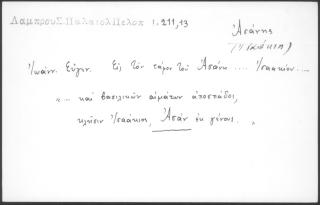 ΛαμπρουΣ.ΠαλαιολΠελοπ 1.211,13
Ἀσάνης
(Ἰσαάκιος)
Ἰωάνν. Εὐγεν. Εἰς τὸν τάφον τοῦ Ἀσάνη .... Ἰσαακίου....
"... καὶ βασιλικῶν αἱμάτων ἀποσπάδος,
κλῆσιν Ἰσαάκιος, Ἀσὰν ἐκ γένους. "